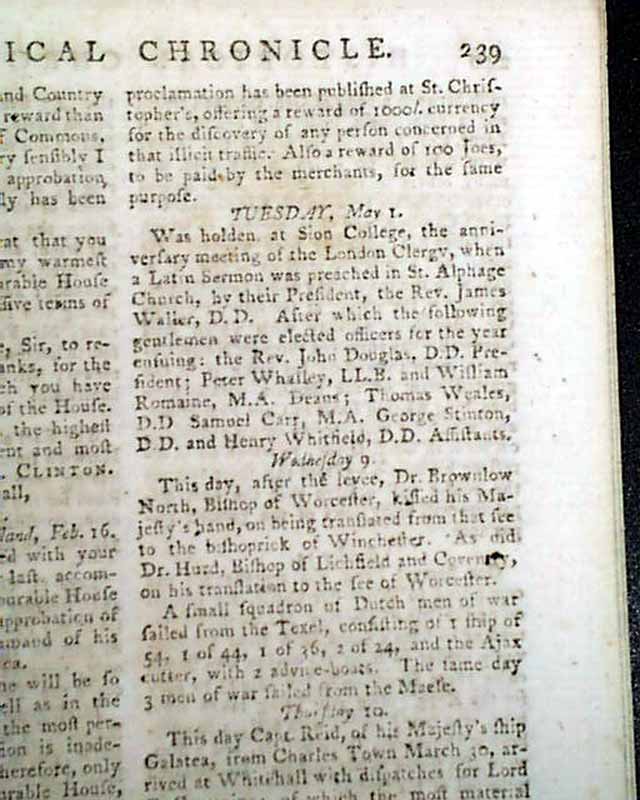 ICAL CHRONICLE. 239
and Country
reward than
f Commons,
ry ſenſibly I
approbation,
ly has been
at that you
my warmeſt
urable Houſe
ſive terms of
, Sir, to re-
anks, for the
ch you have
of the Houſe.
the higheſt
ent and moſt
CLINTON.
all,
land, Feb. 16.
ed with your
laſt accom-
ourable Houſe
approbation of
mmand of his
ca.
ne will be ſo
ell as in the
the moſt per-
ion is inade-
herefore, only
urable Houſe,
proclamation has been publiſhed at St. Chriſ-
topher's, offering a reward of 1000l. currency
for the diſcovery of any perſon concerned in
that illicit traffic. Alſo a reward of 100 Joes,
to be paid by the merchants, for the ſame
purpoſe.
TUESDAY, May 1.
Was holden at Sion College, the anni-
verſary meeting of the London Clergy, when
a Latin Sermon was preached in St. Alphage
Church, by their Preſident, the Rev. James
Waller, D.D. After which the following
gentlemen were elected officers for the year
enſuing: the Rev. John Douglas, D.D. Pre-
ſident; Peter Whalley, LL.B. and William
Romaine, M.A. Deans; Thomas Weales,
D.D Samuel Carr, M.A. George Stinton,
D.D. and Henry Whitfield, D.D. Aſſiſtants.
Wedneſday 9.
This day, after the levee, Dr. Brownlow
North, Biſhop of Worceſter, kiſſed his Ma-
jeſty's hand, on being tranſlated from that ſee
to the biſhoprick of Wincheſter. As did
Dr. Hurd, Biſhop of Lichfield and Coventry,
on his tranſlation to the ſee of Worceſter.
A ſmall ſquadron of Dutch men of war
ſailed from the Texel, conſiſting of 1 ſhip of
54, 1 of 44, 1 of 36, 2 of 24, and the Ajax
cutter, with 2 advice-boats. The ſame day
3 men of war ſailed from the Maeſe.
Thurſday 10.
This day Capt. Reid, of his Majeſty's ſhip
Galatea, from Charles Town March 30, ar-
rived at Whitehall with diſpatches for Lord
of which the moſt material